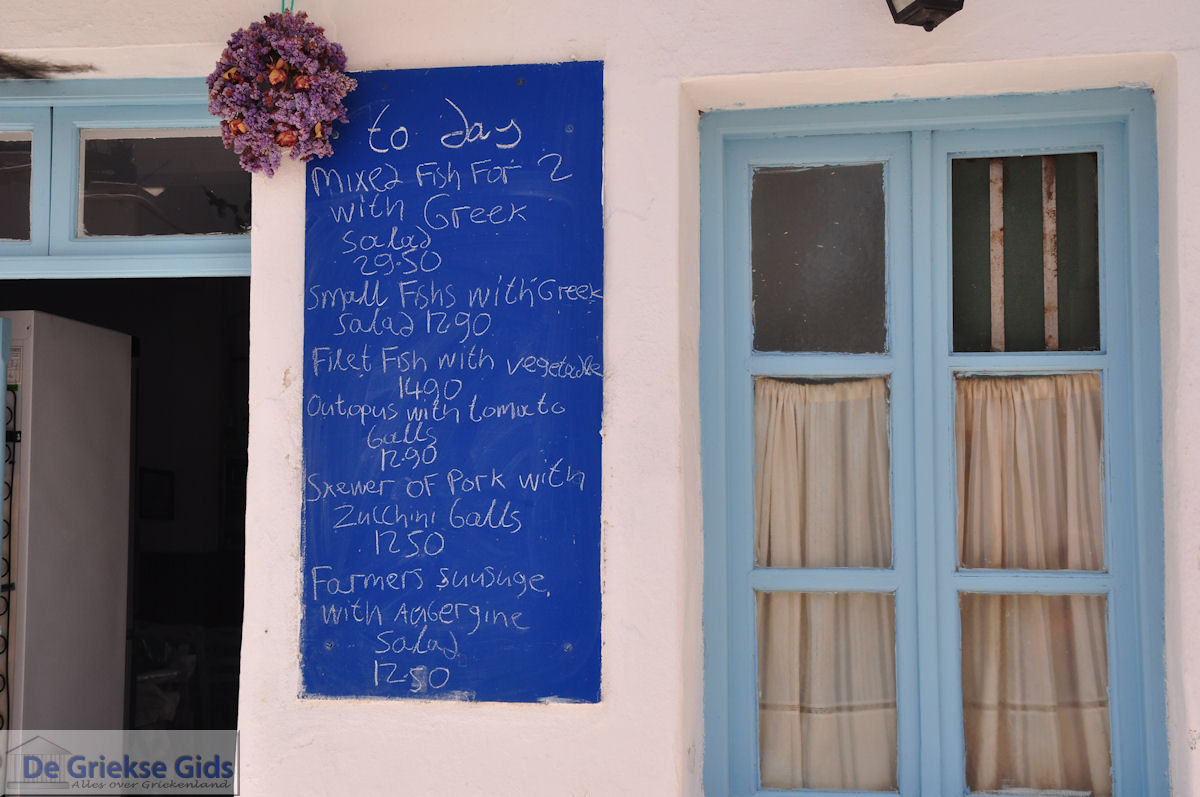 to day
Mixed Fish For 2
with Greek
salad
29.50
Small Fishs with Greek
salad 12.90
Filet Fish with vegetable
14.90
Outopus with tomato
balls
12.90
Skewer of Pork with
Zucchini balls
12.50
Farmers suusuge,
with Aubergine
salad
12.50
De Griekse Gids
Alles over Griekenland